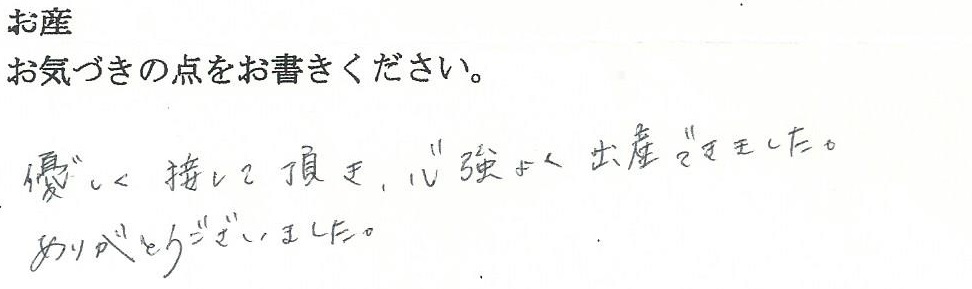 お産
お気づきの点をお書きください。
優しく接して頂き、心強よく出産できました。
ありがとうございました。